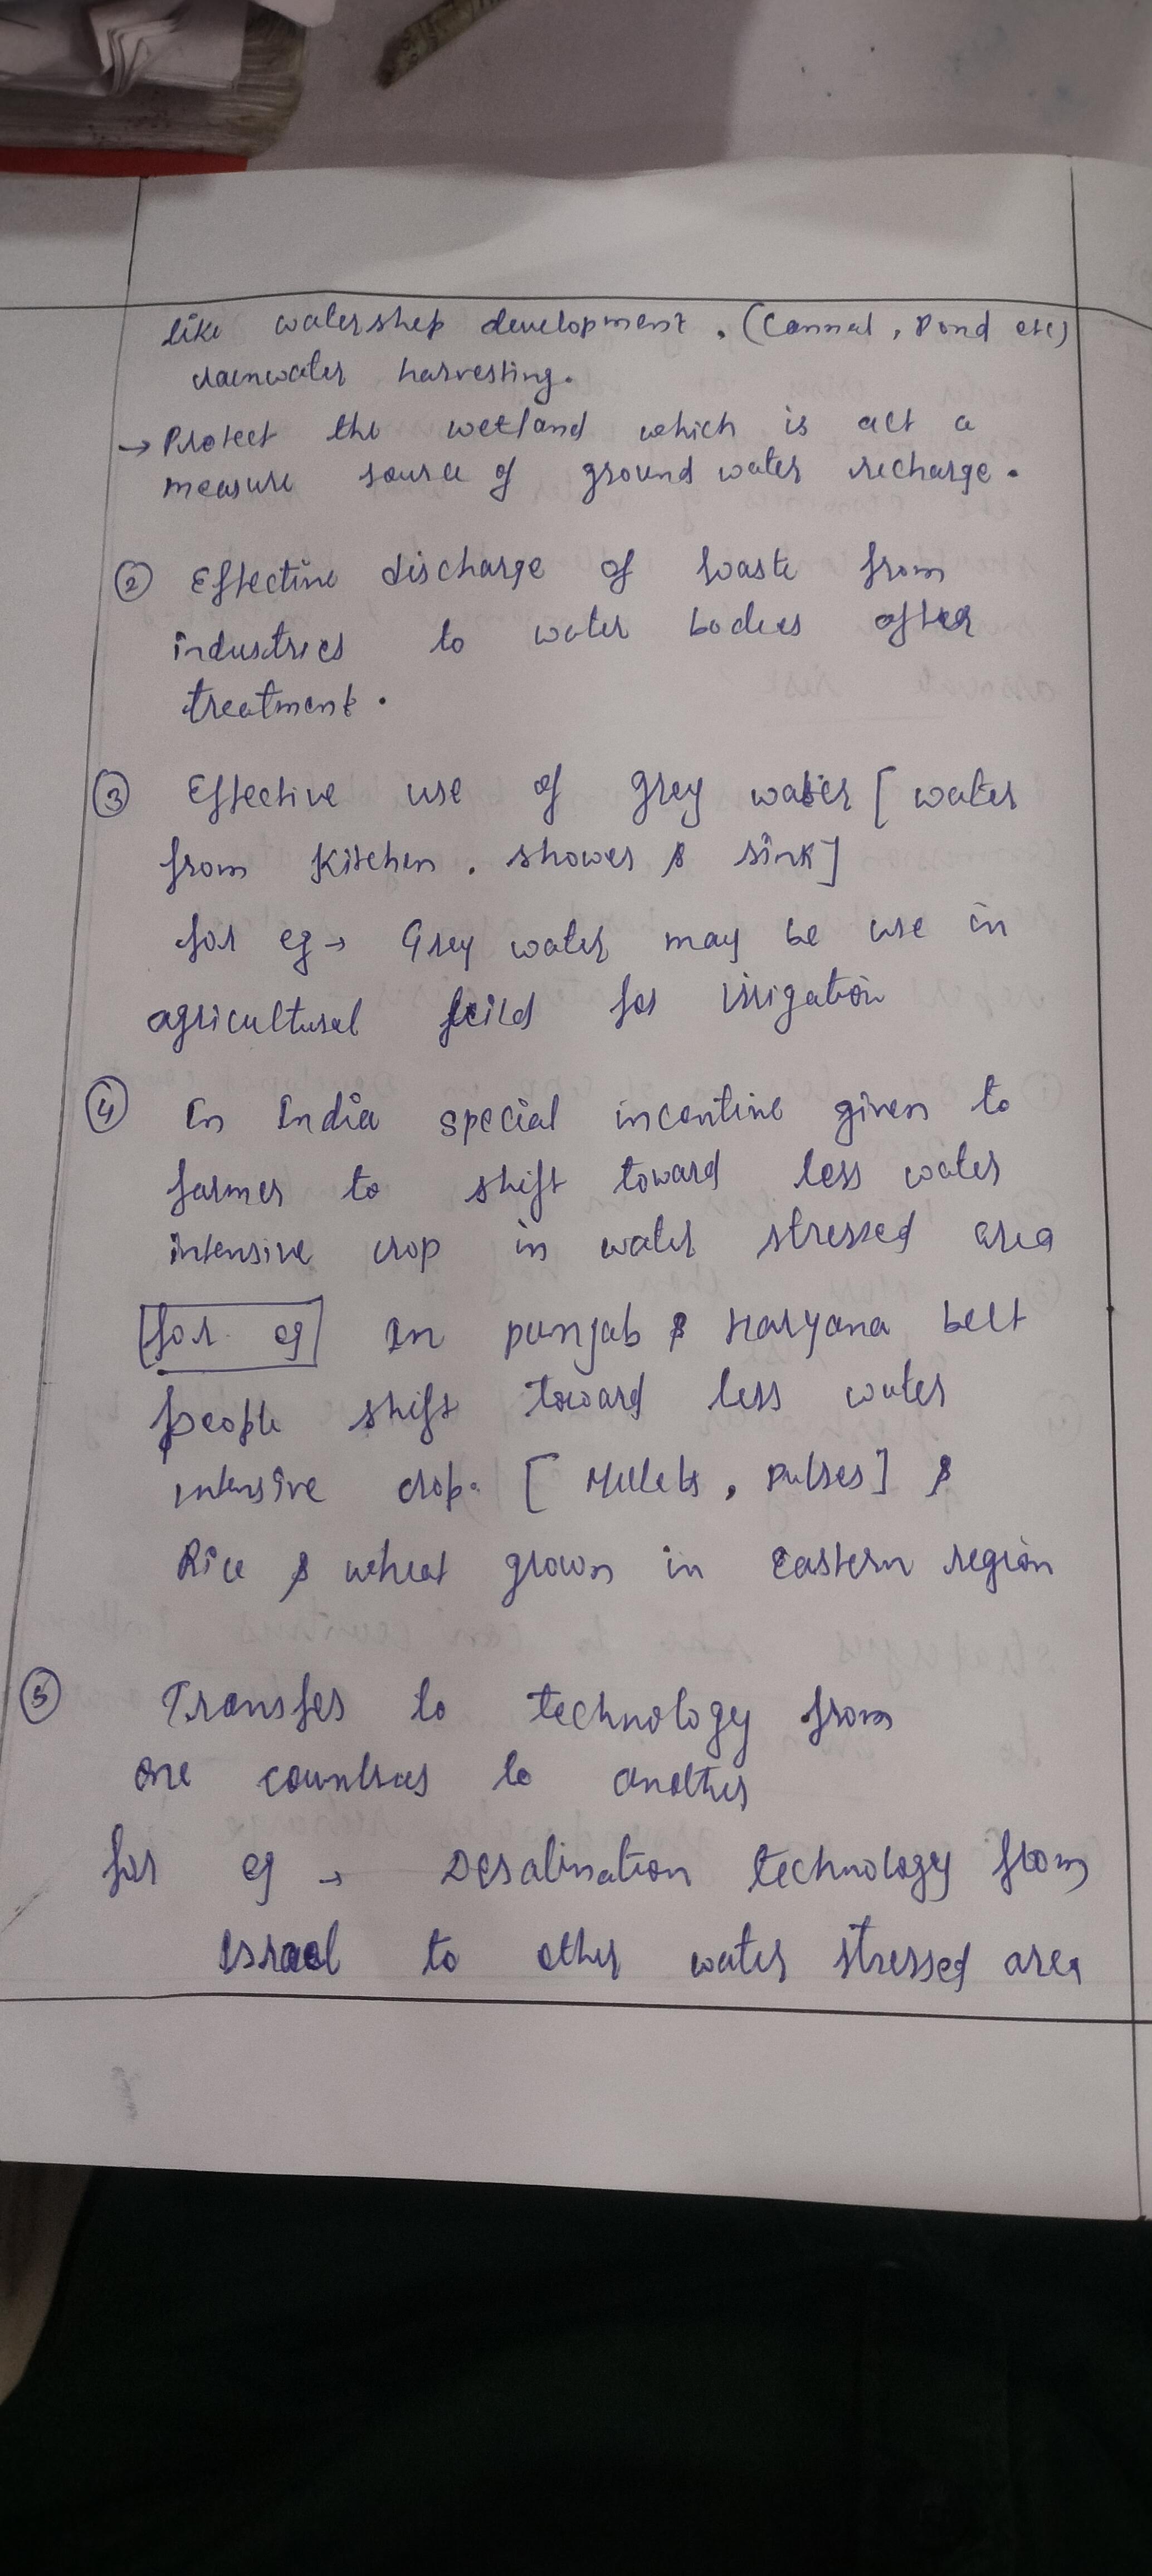 like watershep development. (Cannal, Pond etc)
rainwater harvesting.
→ Protect the wetland which is act a
measure source of ground water recharge.
② Effective discharge of waste from
industries to water bodies after
treatment.
③ Effective use of grey water [water
from kitchen, shower & sink]
for eg → Grey water may be use in
agricultural feild for irrigation
④ In India special incentive given to
farmer to shift toward less water
intensive crop in water stressed area
for eg In punjab & Haryana belt
people shift toward less water
intensive crop. [Millets, Pulses] &
Rice & wheat grown in Eastern region
⑤ Transfer to technology from
one countries to another
for eg → Desalination technology from
Israel to other water stressed area